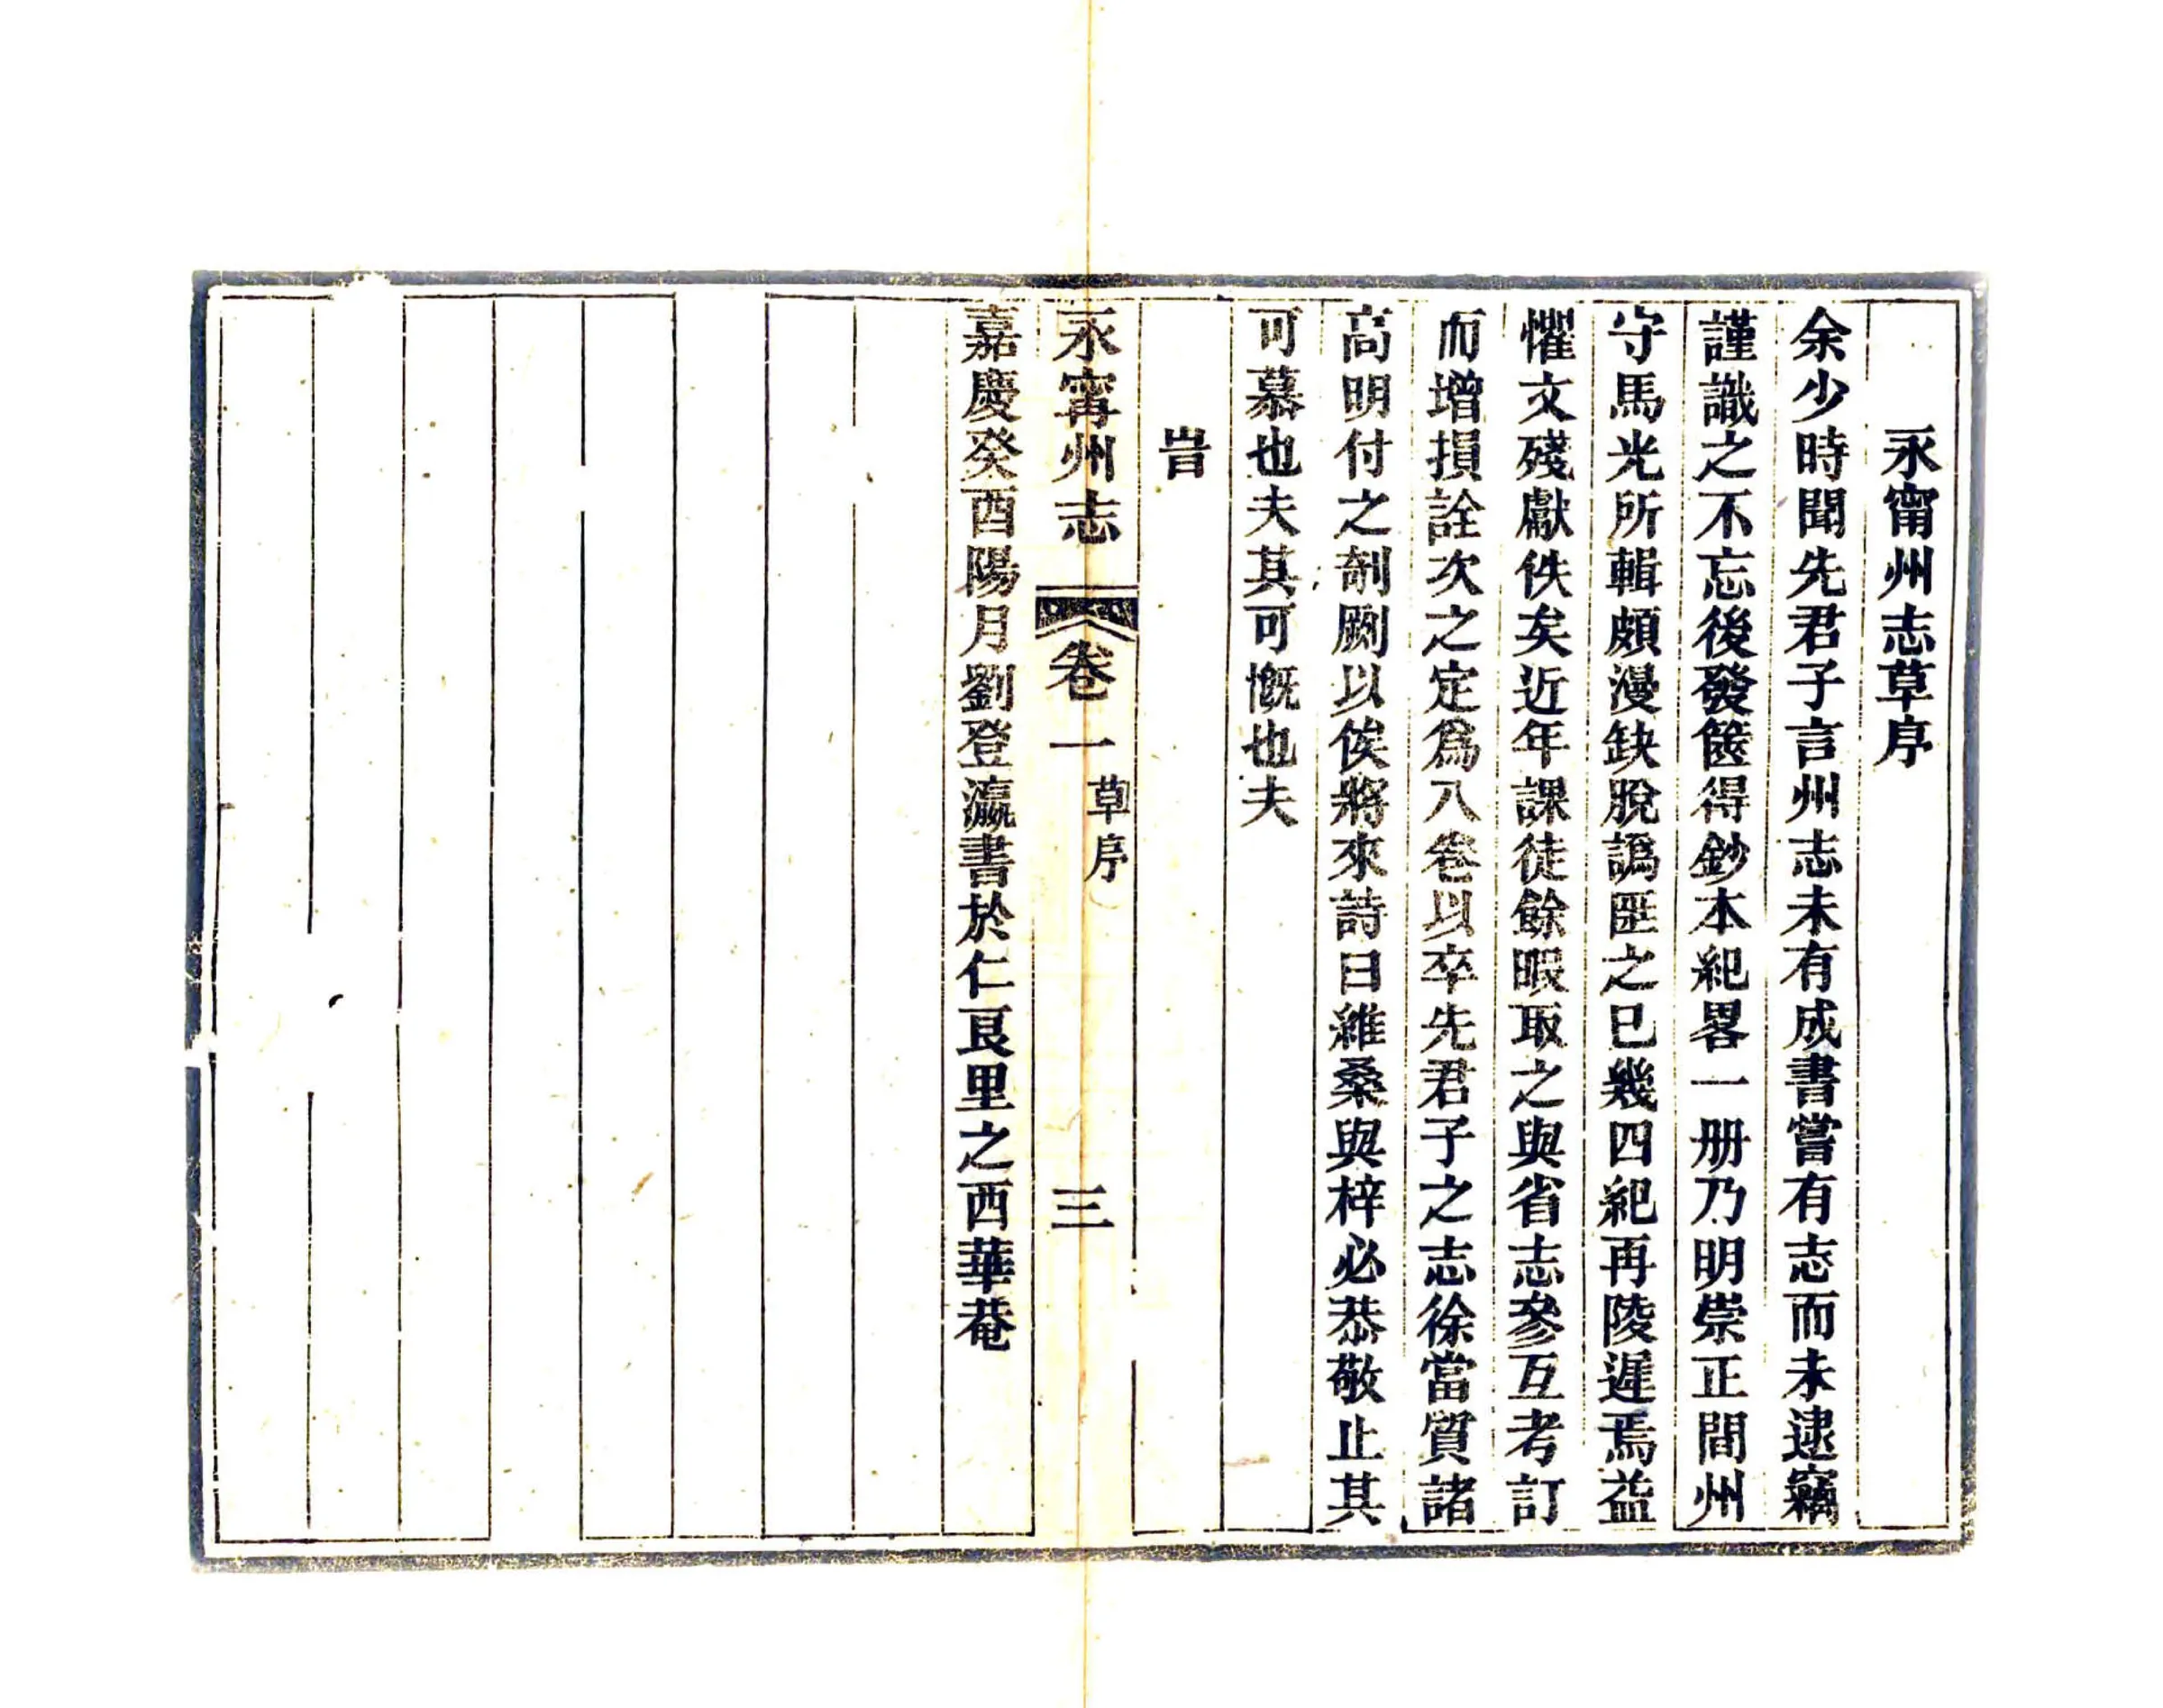 永甯州志草序
余少時聞先君子言州志未有成書嘗有志而未逮竊
謹識之不忘後發篋得鈔本紀畧一册乃明崇正間州
守馬光所輯頗漫缺脫譌歴之已幾四紀再陵遲焉益
懼文殘獻佚矣近年課徒餘暇取之與省志參互考訂
而增損詮次之定爲八卷以卒先君子之志徐當質諸
高明付之剞劂以俟將來詩曰維桑與梓必恭敬止其
可慕也夫其可慨也夫
旹
永甯州志
卷一
草序
三
嘉慶癸酉陽月劉登瀛書於仁艮里之西華菴